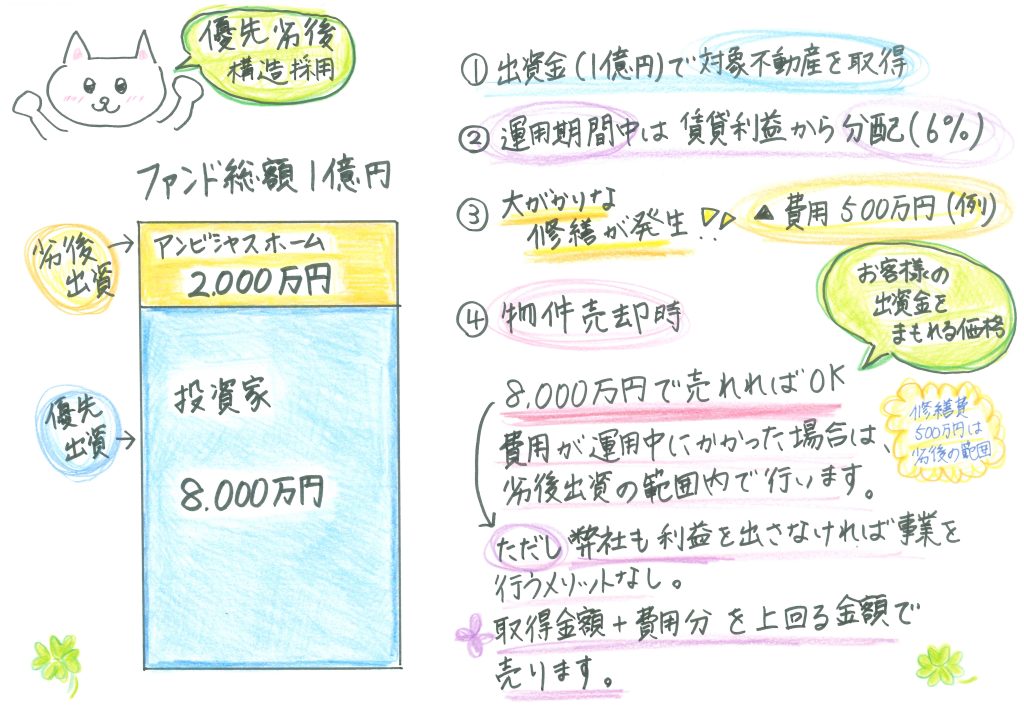 優先劣後
構造採用
ファンド総額1億円
劣後
出資
アンビシャスホーム
2.000万円
優先
出資
投資家
8.000万円
① 出資金(1億円)で対象不動産を取得
② 運用期間中は賃貸利益から分配(6%)
③ 大がかりな
修繕が発生!!
▲費用500万円(例)
④ 物件売却時
お客様の
出資金を
まもれる価格
8.000万円で売れればOK
費用が運用中にかかった場合は、
劣後出資の範囲内で行います。
修繕費
500万円は
劣後の範囲
ただし 弊社も利益を出さなければ事業を
行うメリットなし。
取得金額+費用分を上回る金額で
売ります。